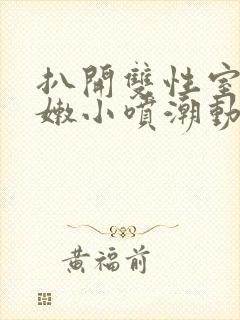 扒開雙性室
嫩小噴潮動
黃福前